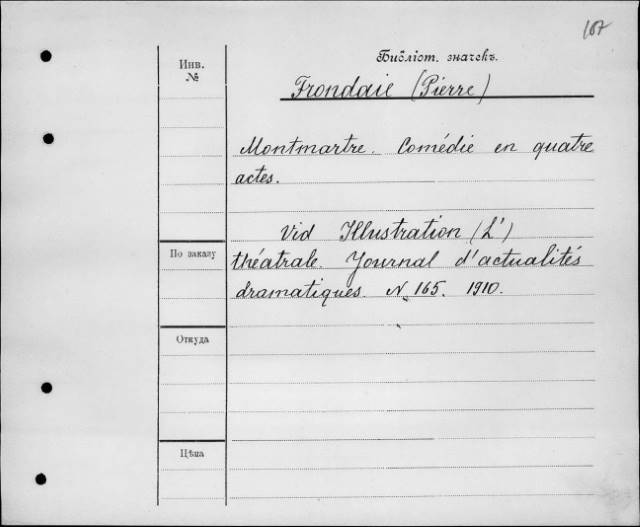 107
Инв.
№
Библіот. значекъ.
Frondaie (Pierre)
Montmartre. Comédie en quatre
actes.
Vid Illustration (L')
По заказу
théatrale. Journal d'actualités
dramatiques. N. 165. 1910.
Откуда
Цѣна